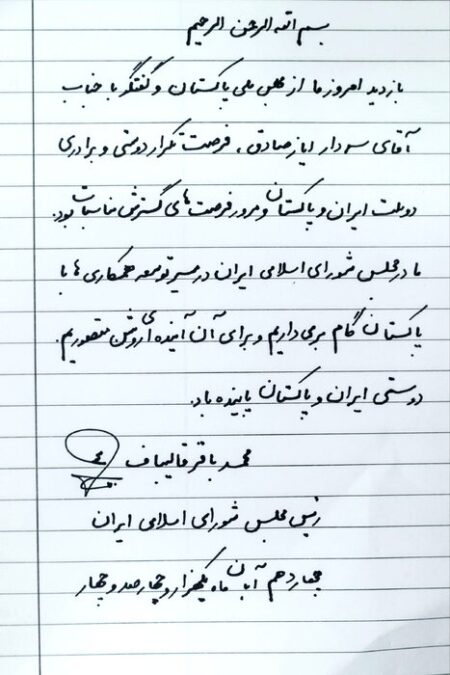 بسم الله الرحمن الرحیم
بازدید امروز ما از مجلس ملی پاکستان و گفتگو با جناب
آقای سردار ایاز صادق، فرصت تکرار دوستی و برادری
دو ملت ایران و پاکستان و مرور فرصت های گسترش مناسبات بود.
ما در مجلس شورای اسلامی ایران در مسیر توسعه همکاری ها با
پاکستان گام برمی داریم و برای آن آینده ای روشن متصوریم.
دوستی ایران و پاکستان پاینده باد.
محمد باقر قالیباف
رئیس مجلس شورای اسلامی ایران
چهاردهم آبان ماه یکهزار و چهارصد و چهار